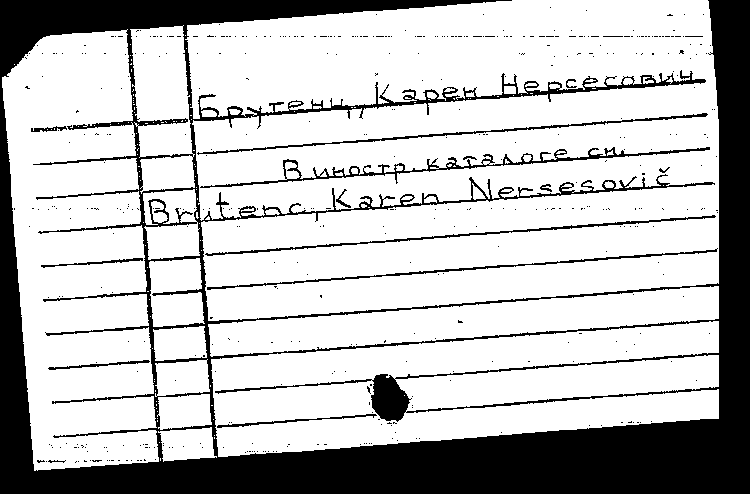 Брутенц, Карен Нерсесович
В иностр. каталоге см.
Brutenc, Karen Nersesovič